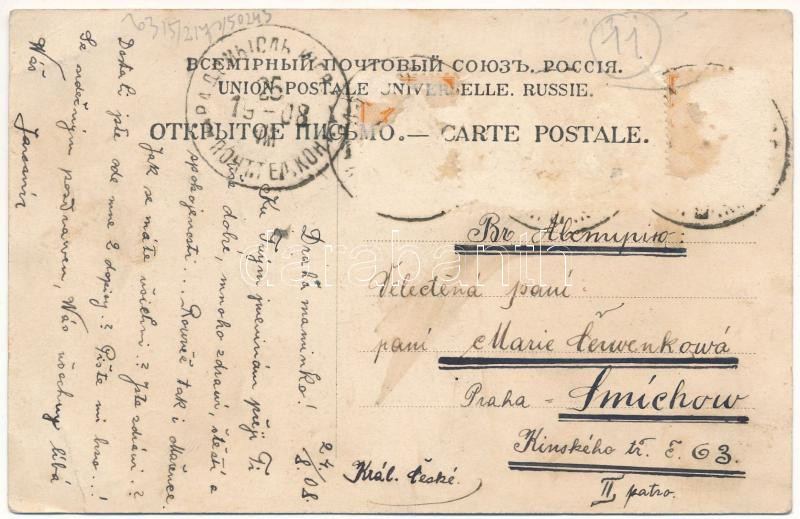 6315/2179/50243
11
ВСЕМІРНЫЙ ПОЧТОВЫЙ СОЮЗЪ. РОССІЯ.
UNION POSTALE UNIVERSELLE. RUSSIE.
ОТКРЫТОЕ ПИСЬМО.— CARTE POSTALE.
25
19-08
Въ Австрію:
Veledctená paní
paní Marie Červenková
Praha = Smíchow
Kinského tř. č. 63.
II, patro.
Král. České.
24/8. 08.
Drahá maminko!
Ku Tvým jmeninám přeji Ti
dobré, mnoho zdraví, štěstí a
spokojenosti... Rovněž tak i Mařence.
Jak se máte všichni? Jste zdrávi?
Dostali jste ode mne 2 dopisy? Pište mi brzo..!
Se srdečným pozdravem, Vás všechny líbá
Váš Jaromír
darabanth